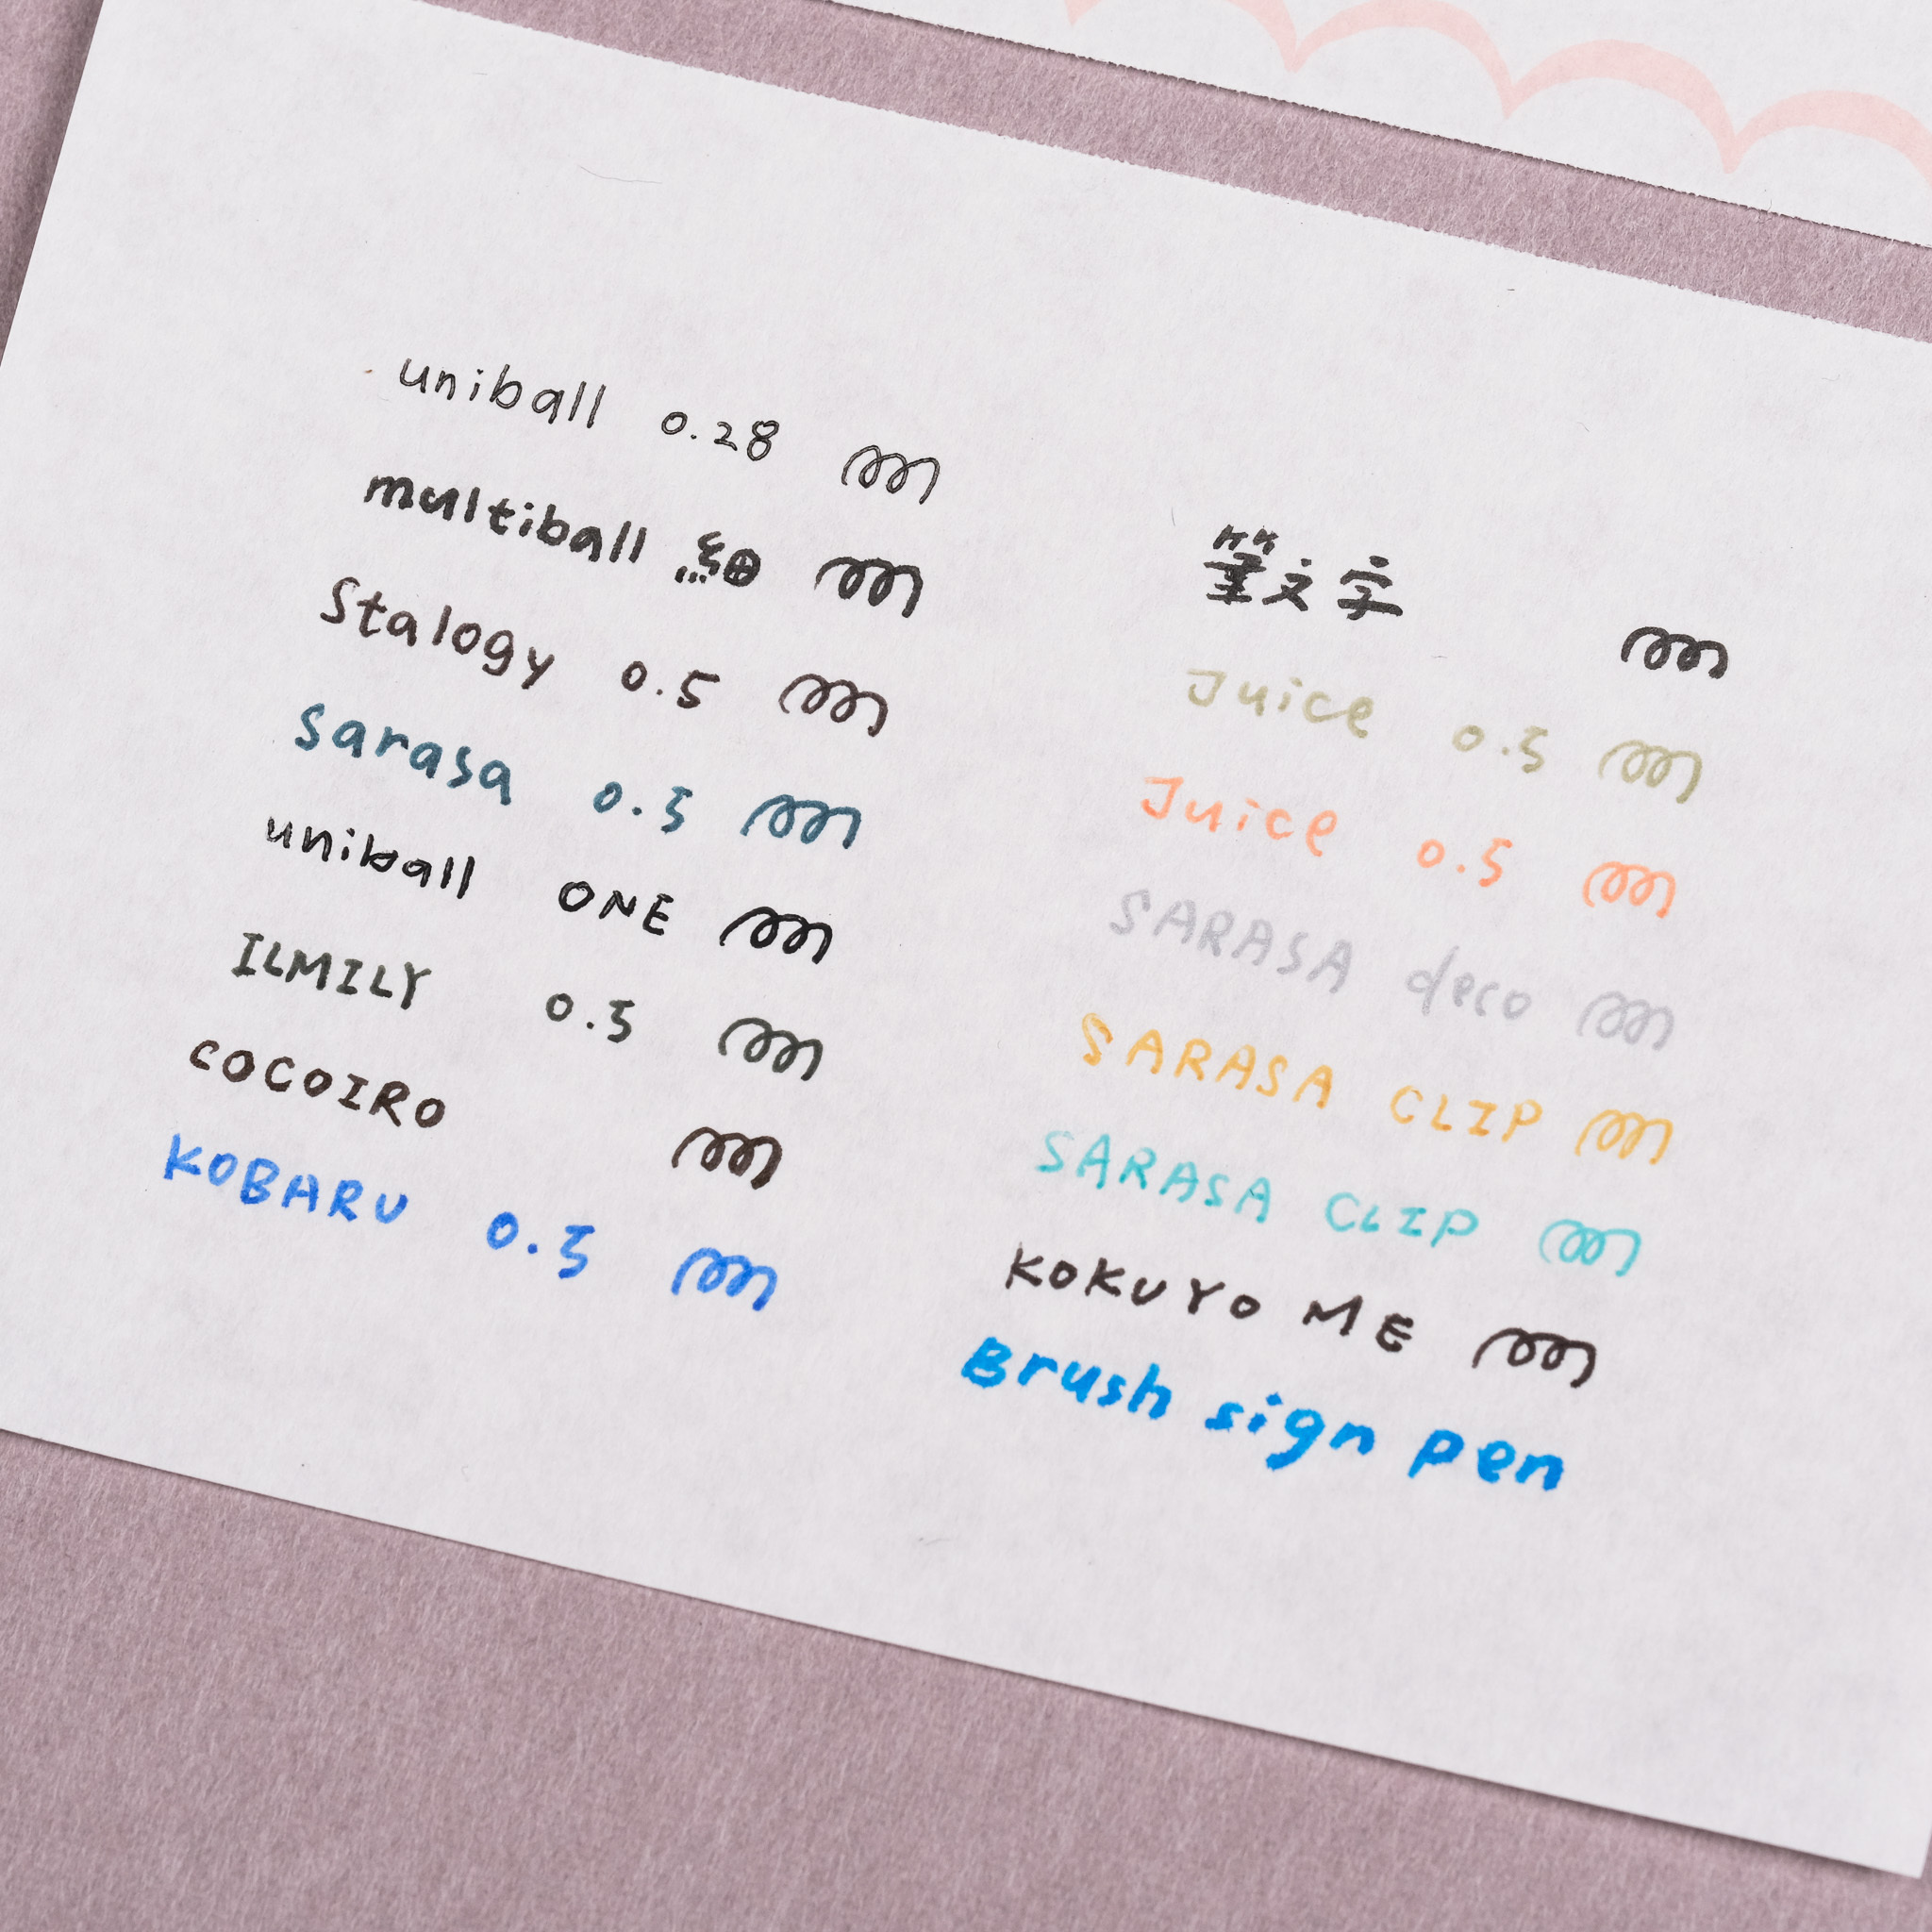 uniball 0.28
multiball 細
Stalogy 0.5
sarasa 0.5
uniball ONE
ILMILY 0.5
COCOIRO
KOBARU 0.5
筆文字
Juice 0.5
Juice 0.5
SARASA deco
SARASA CLIP
SARASA CLIP
KOKUYO ME
Brush sign pen